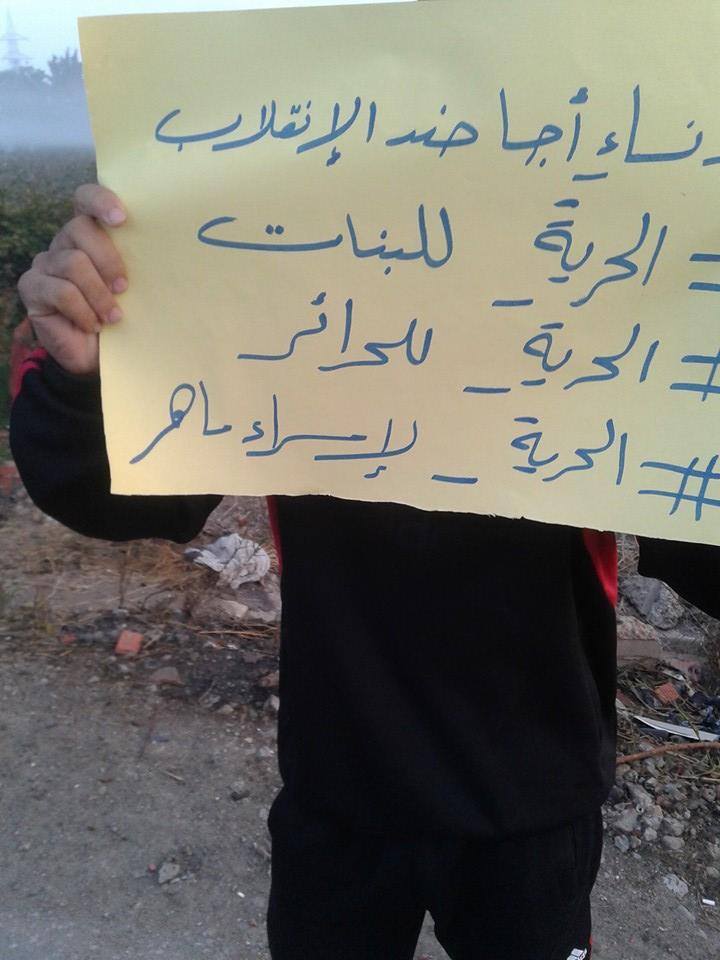 نساء أجا ضد الإنقلاب
= الحرية_ للبنات
# الحرية_ للحرائر
# الحرية_ لإسراء ماهر